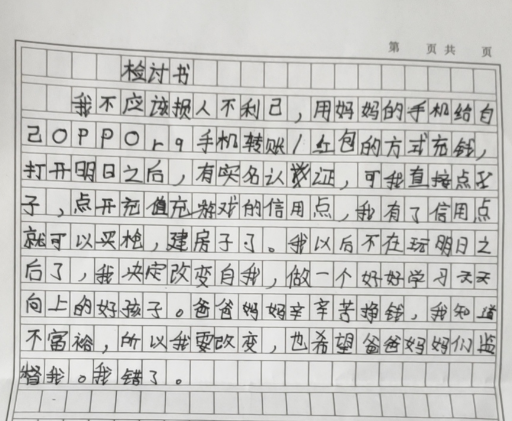 第 页共 页
检讨书
我不应该损人不利己，用妈妈的手机给自
己OPPOr9手机转账/红包的方式充钱，
打开明日之后，有实名认证，可我直接点叉
子，点开充值充游戏的信用点，我有了信用点
就可以买枪，建房子了。我以后不在玩明日之
后了，我决定改变自我，做一个好好学习天天
向上的好孩子。爸爸妈妈辛辛苦挣钱，我知道
不富裕，所以我要改变，也希望爸爸妈妈们监
督我。我错了。